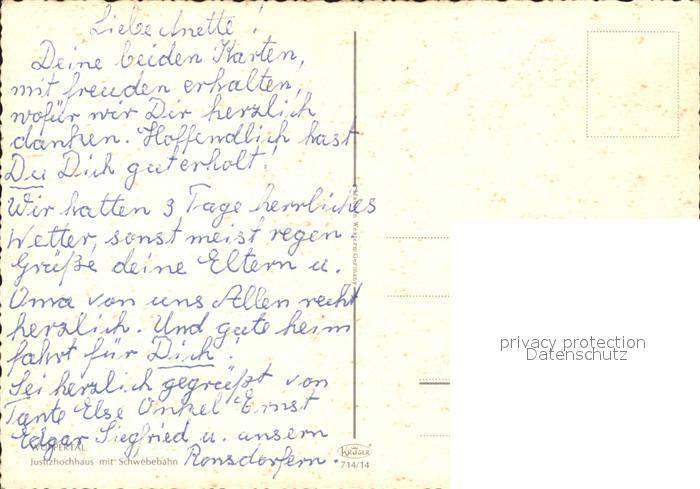 Liebe Anette!
Deine beiden Karten,
mit freuden erhalten,
wofür wir Dir herzlich
danken. Hoffendlich hast
Du Dich gut erholt!
Wir hatten 3 Tage herrliches
Wetter, sonst meist regen
Grüße deine Eltern u.
Oma von uns Allen recht
herzlich. Und gute heim
fahrt für Dich!
Sei herzlich gegrüßt von
Tante Else Onkel Ernst
Edgar Siegfried u. unsern
Ronsdorfern.
WUPPERTAL
Justizhochhaus mit Schwebebahn
KRÜGER
714/14
privacy protection
Datenschutz